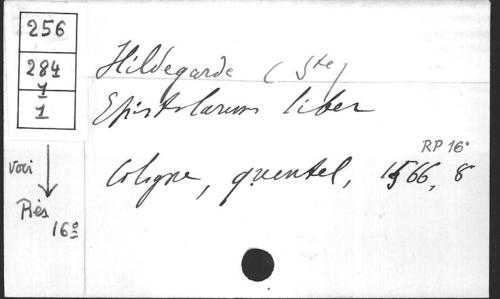 256
284
1
1
voir
↓
Rés
16º
Hildegarde (Ste)
Epistolarum liber
RP 16º
Cologne, quentel, 1566, 8º